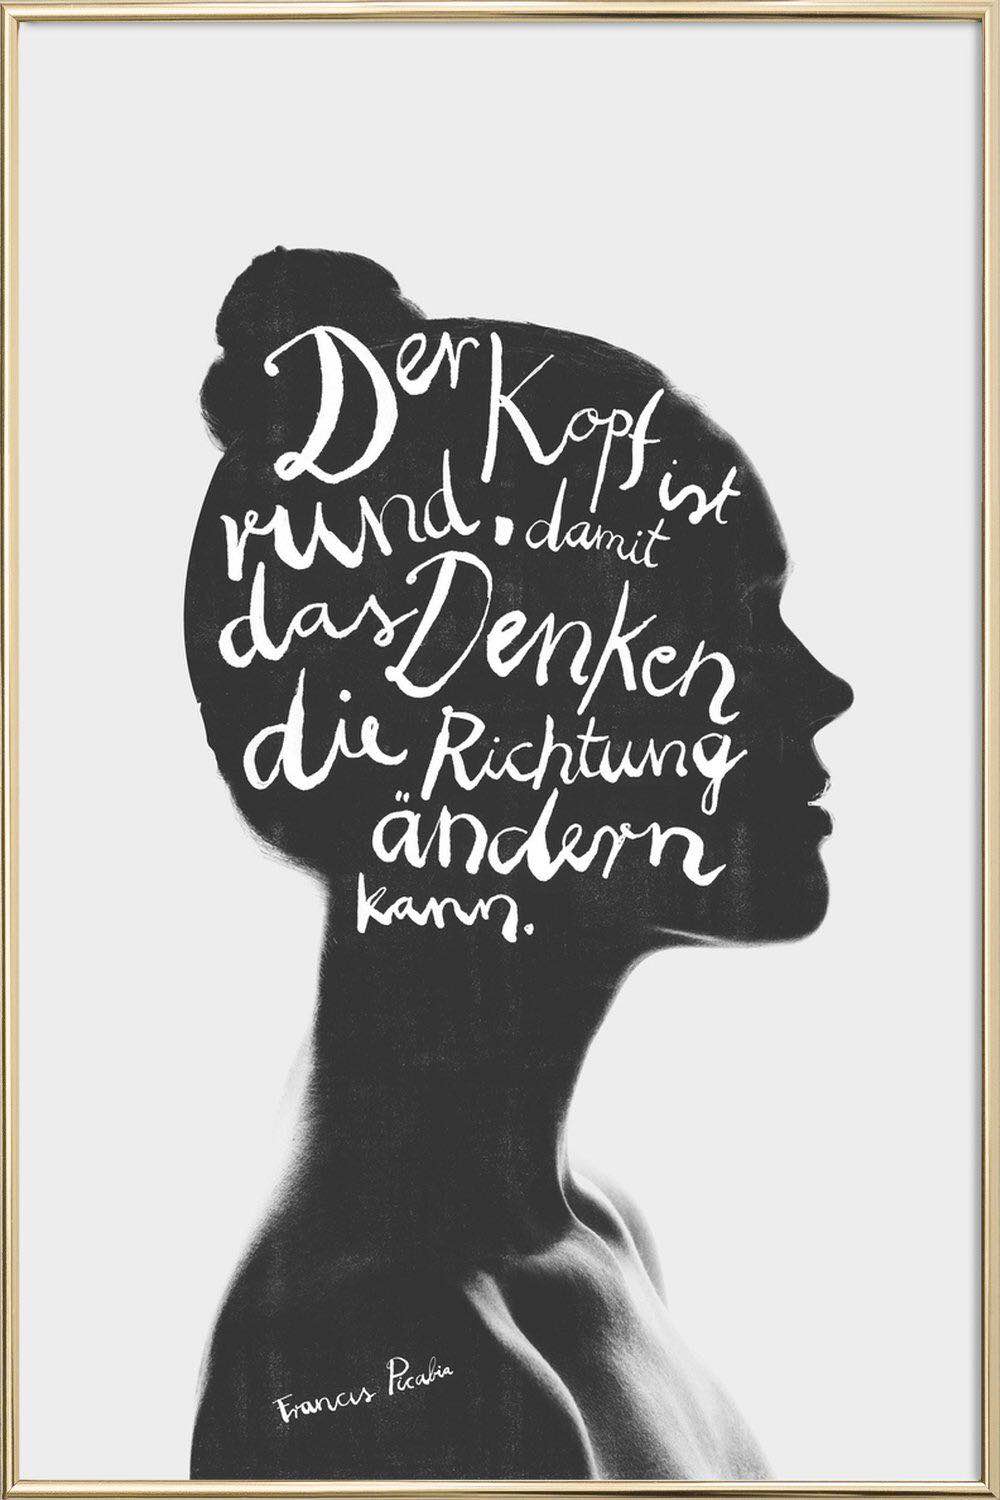 Der Kopf ist
rund, damit
das Denken
die Richtung
ändern
kann.
Francis Picabia